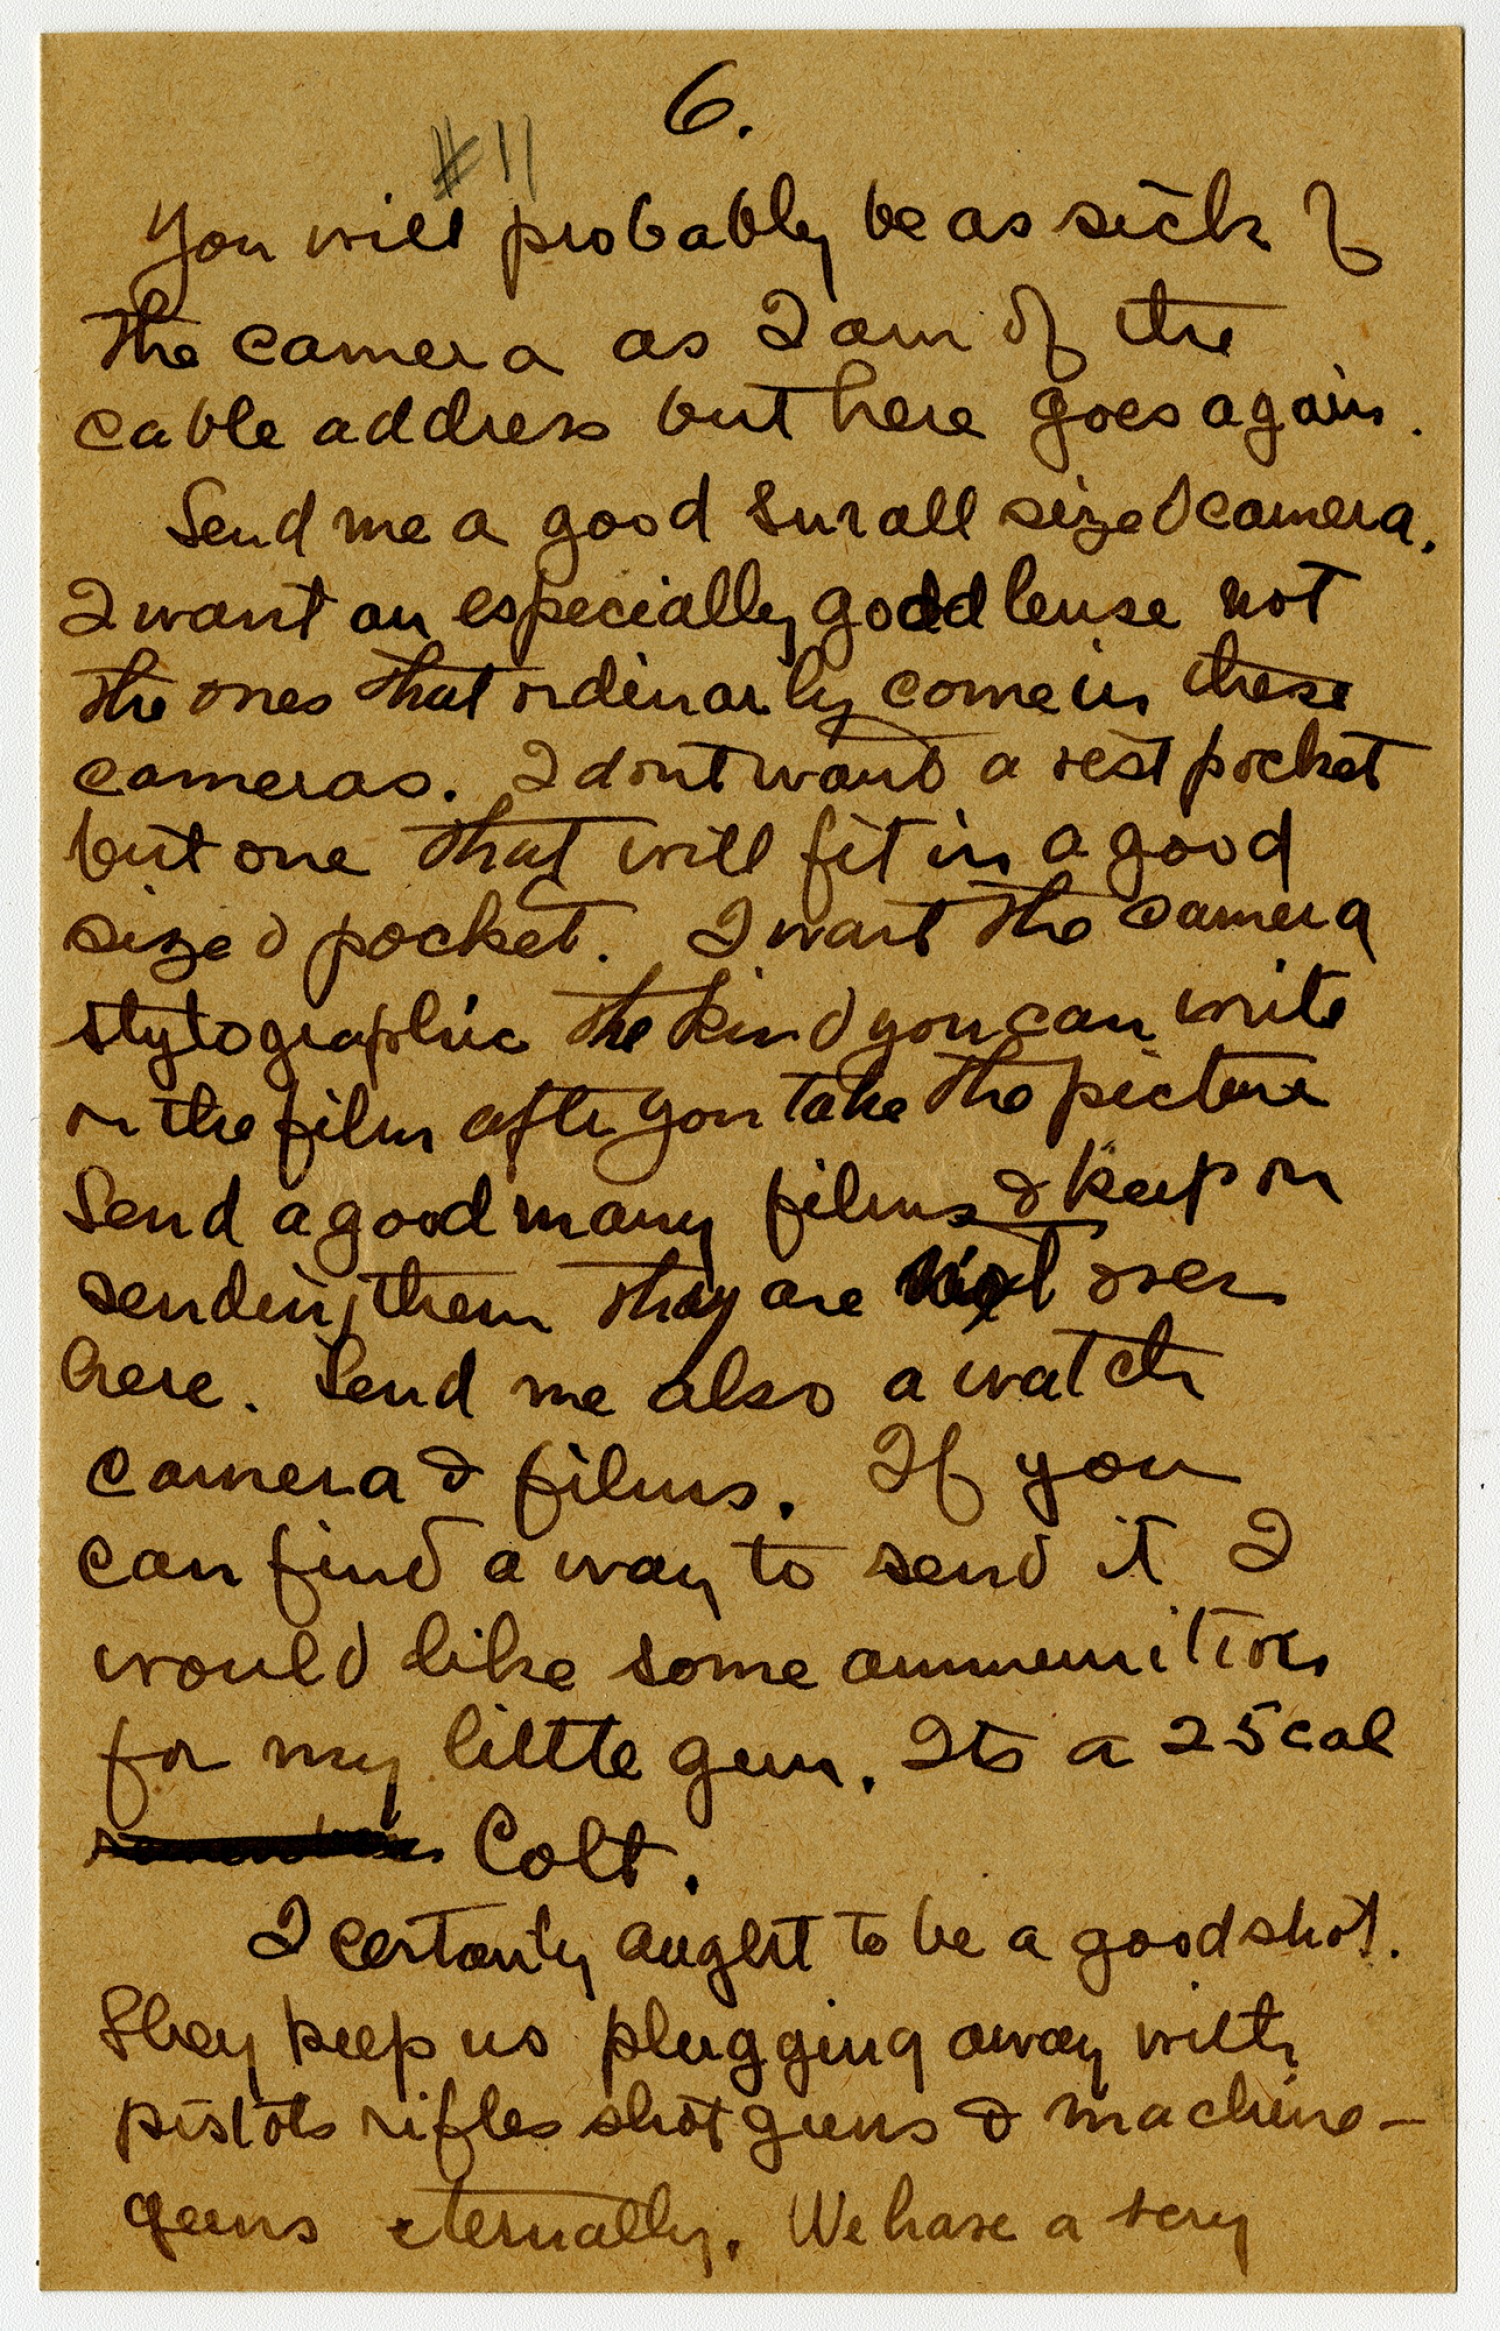 6.
#11
You will probably be as sick of
the camera as I am of the
cable address but here goes again.
Send me a good small sized camera.
I want an especially good lense not
the ones that ordinarily come in these
cameras. I dont want a vest pocket
but one that will fit in a good
sized pocket. I want the camera
stylographic the kind you can write
on the film after you take the picture
Send a good many films & keep on
sending them they are not over
here. Send me also a watch
camera & films. If you
can find a way to send it I
would like some ammunition
for my little gun. Its a 25 cal
Colt.
I certanly aught to be a good shot.
They keep us plugging away with
pistols rifles shot guns & machine-
guns eternally. We have a very